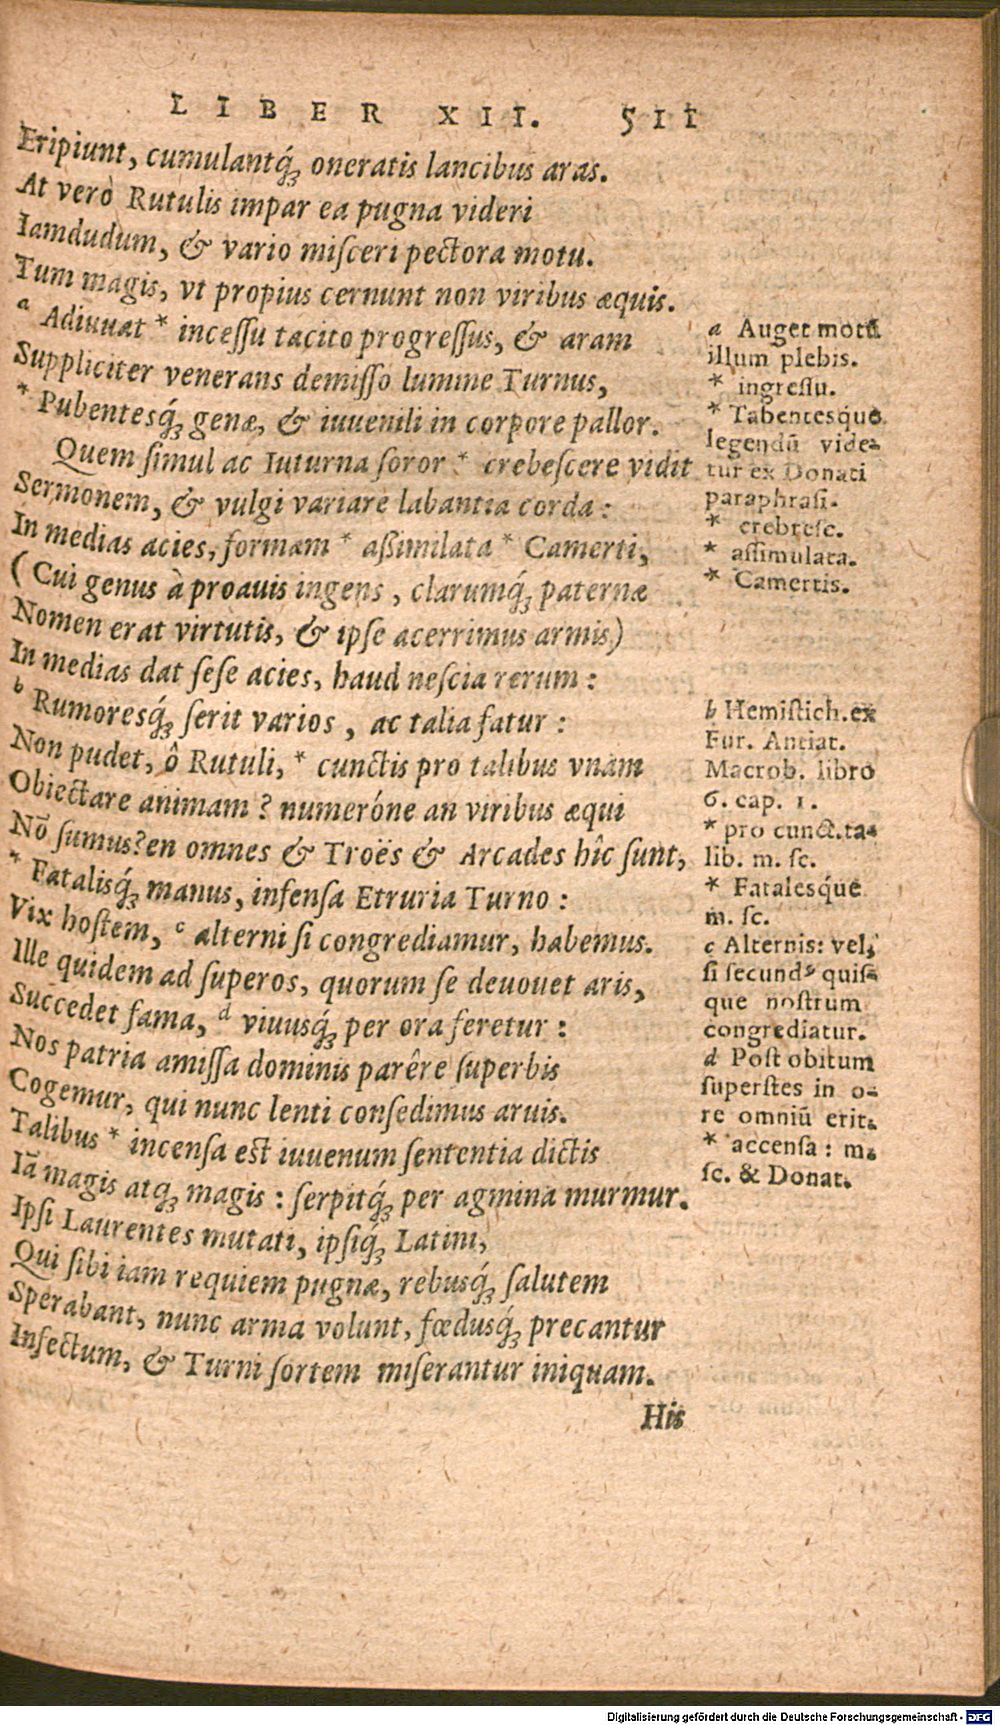 LIBER XII. 511
Eripiunt, cumulantq́ʒ oneratis lancibus aras.
At verò Rutulis impar ea pugna videri
Iamdudum, & vario miſceri pectora motu.
Tum magis, vt propius cernunt non viribus æquis.
a Adiuuat * inceſſu tacito progreſſus, & aram
Suppliciter venerans demiſſo lumine Turnus,
* Pubentesq́ʒ genæ, & iuuenili in corpore pallor.
Quem ſimul ac Iuturna ſoror * crebeſcere vidit
Sermonem, & vulgi variare labantia corda:
In medias acies, formam * aßimilata * Camerti,
(Cui genus à proauis ingens, clarumq́ʒ paternæ
Nomen erat virtutis, & ipſe acerrimus armis)
In medias dat ſeſe acies, haud neſcia rerum:
b Rumoresq́ʒ ſerit varios, ac talia fatur:
Non pudet, ô Rutuli, * cunctis pro talibus vnam
Obiectare animam? numeróne an viribus æqui
Nō ſumus? en omnes & Troës & Arcades hîc ſunt,
* Fatalisq́ʒ manus, infenſa Etruria Turno:
Vix hoſtem, c alterni ſi congrediamur, habemus.
Ille quidem ad ſuperos, quorum ſe deuouet aris,
Succedet fama, d viuusq́ʒ per ora feretur:
Nos patria amiſſa dominis parêre ſuperbis
Cogemur, qui nunc lenti conſedimus aruis.
Talibus * incenſa est iuuenum ſententia dictis
Iā magis atqʒ magis: ſerpitq́ʒ per agmina murmur.
Ipſi Laurentes mutati, ipſiq́ʒ Latini,
Qui ſibi iam requiem pugnæ, rebusq́ʒ ſalutem
Sperabant, nunc arma volunt, fœdusq́ʒ precantur
Infectum, & Turni ſortem miſerantur iniquam.
His
a Auget motū
illum plebis.
* ingreſſu.
* Tabentesque
legendū vide-
tur ex Donati
paraphraſi.
* crebreſc.
* aſſimulata.
* Camertis.
b Hemiſtich. ex
Fur. Antiat.
Macrob. libro
6. cap. 1.
* pro cunct. ta-
lib. m. ſc.
* Fatalesq́ue
m. ſc.
c Alternis: vel,
ſi ſecundꝰ quiſ-
que noſtrum
congrediatur.
d Poſt obitum
ſuperſtes in o-
re omniū erit.
* accenſa: m.
ſc. & Donat.
Digitalisierung gefördert durch die Deutsche Forschungsgemeinschaft - DFG